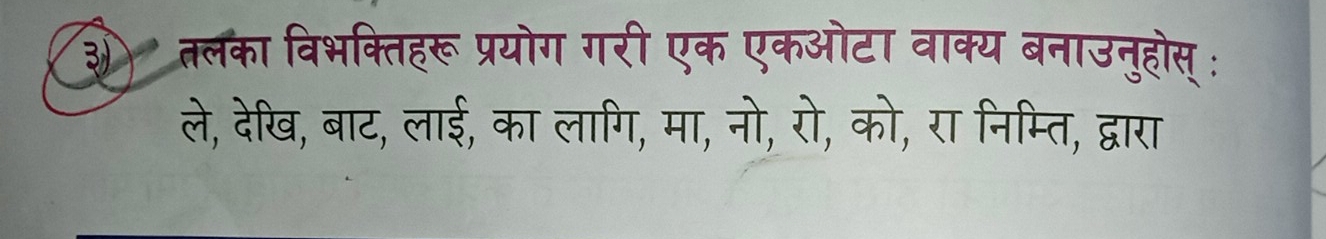 ३) तलका विभक्तिहरू प्रयोग गरी एक एकओटा वाक्य बनाउनुहोस् :
ले, देखि, बाट, लाई, का लागि, मा, नो, रो, को, रा निम्ति, द्वारा